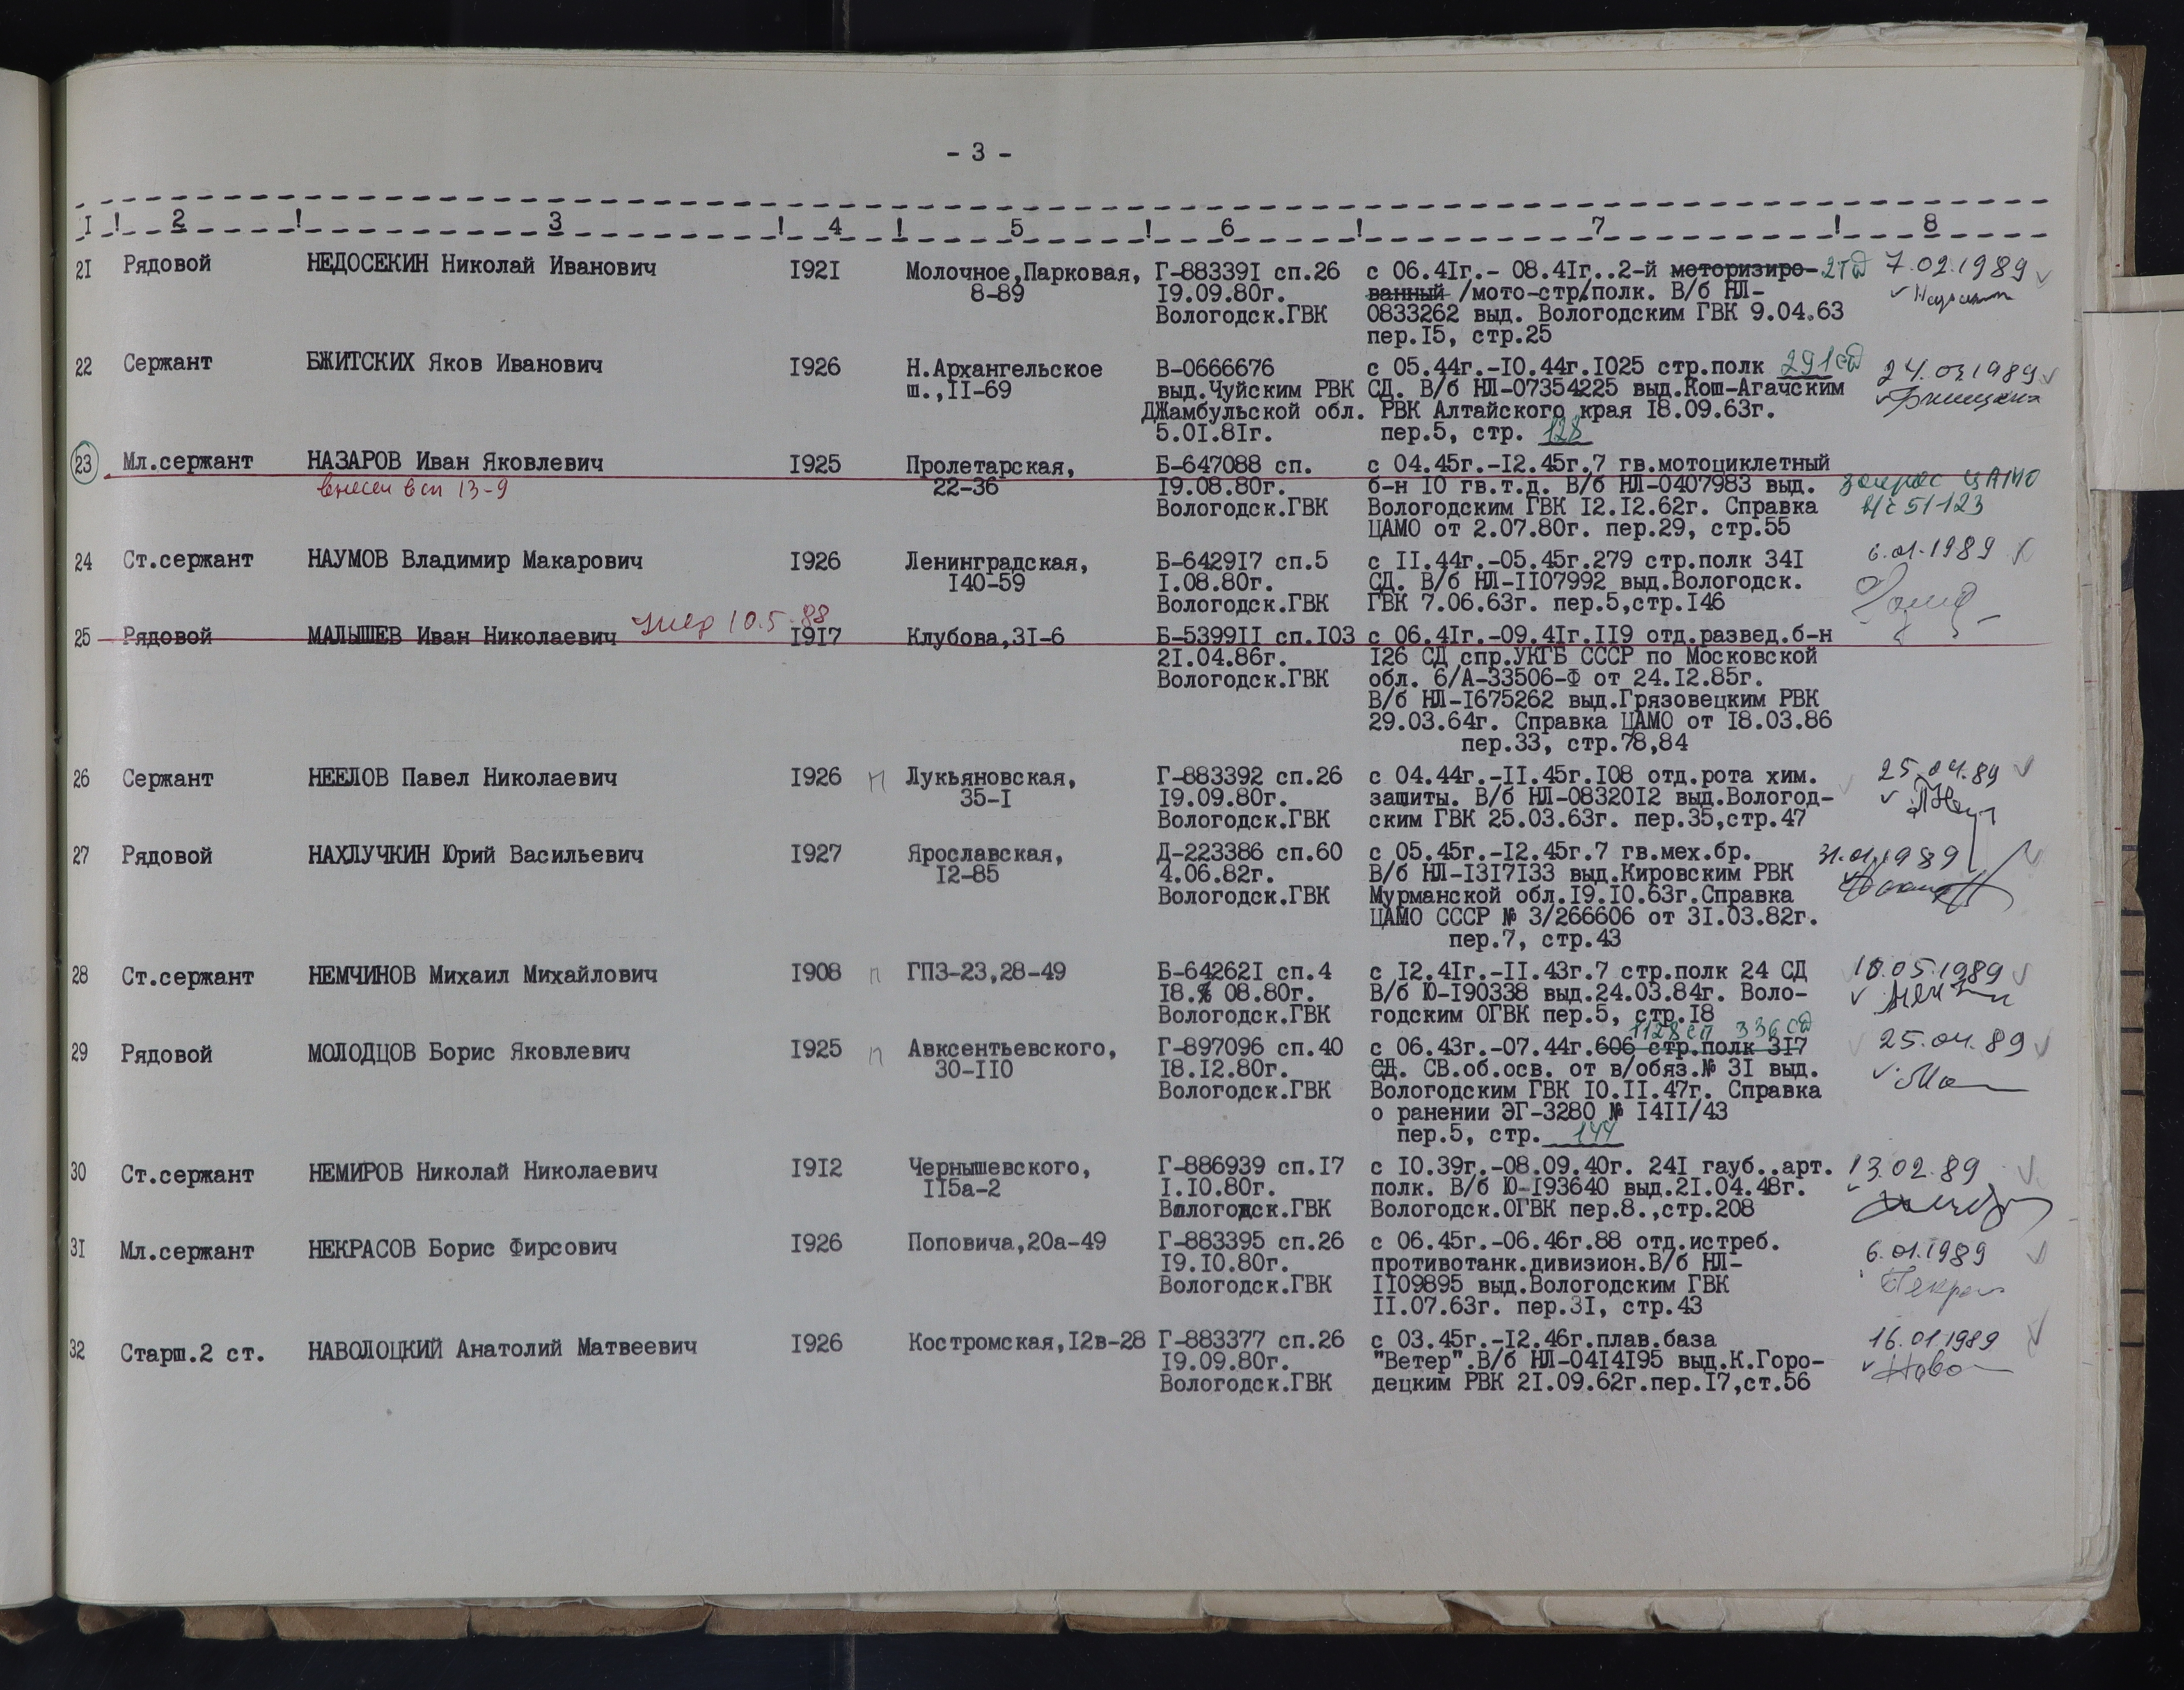 - 3 -
I ! 2 ! 3 ! 4 ! 5 ! 6 ! 7 ! 8
2I Рядовой НЕДОСЕКИН Николай Иванович I92I Молочное,Парковая, Г-88339I сп.26 с 06.4Iг.- 08.4Iг..2-й моторизиро- 2тд 7.02.1989
8-89 I9.09.80г. ванный /мото-стр/полк. В/б НЛ-
Вологодск.ГВК 0833262 выд. Вологодским ГВК 9.04.63
пер.I5, стр.25
22 Сержант БЖИТСКИХ Яков Иванович I926 Н.Архангельское В-0666676 с 05.44г.-I0.44г.I025 стр.полк 291сд 24.03.1989
ш.,II-69 выд.Чуйским РВК СД. В/б НЛ-07354225 выд.Кош-Агачским
ДЖамбульской обл. РВК Алтайского края I8.09.63г.
5.0I.8Iг. пер.5, стр. 128
23 Мл.сержант НАЗАРОВ Иван Яковлевич I925 Пролетарская, Б-647088 сп. с 04.45г.-I2.45г.7 гв.мотоциклетный
внесен в сп 13-9 22-36 I9.08.80г. б-н I0 гв.т.д. В/б НЛ-0407983 выд. запрос ЦАМО
Вологодск.ГВК Вологодским ГВК I2.I2.62г. Справка в/ч 51123
ЦАМО от 2.07.80г. пер.29, стр.55
24 Ст.сержант НАУМОВ Владимир Макарович I926 Ленинградская, Б-6429I7 сп.5 с II.44г.-05.45г.279 стр.полк 34I 6.01.1989
I40-59 I.08.80г. СД. В/б НЛ-II07992 выд.Вологодск.
Вологодск.ГВК ГВК 7.06.63г. пер.5,стр.I46
25 Рядовой МАЛЫШЕВ Иван Николаевич умер 10.5.88 I9I7 Клубова,3I-6 Б-5399II сп.I03 с 06.4Iг.-09.4Iг.II9 отд.развед.б-н
2I.04.86г. I26 СД спр.УКГБ СССР по Московской
Вологодск.ГВК обл. 6/А-33506-Ф от 24.I2.85г.
В/б НЛ-I675262 выд.Грязовецким РВК
29.03.64г. Справка ЦАМО от I8.03.86
пер.33, стр.78,84
26 Сержант НЕЕЛОВ Павел Николаевич I926 п Лукьяновская, Г-883392 сп.26 с 04.44г.-II.45г.I08 отд.рота хим. 25.04.89
35-I I9.09.80г. зашиты. В/б НЛ-08320I2 выд.Вологод-
Вологодск.ГВК ским ГВК 25.03.63г. пер.35,стр.47
27 Рядовой НАХЛУЧКИН Юрий Васильевич I927 Ярославская, Д-223386 сп.60 с 05.45г.-I2.45г.7 гв.мех.бр. 31.01.1989
I2-85 4.06.82г. В/б НЛ-I3I7I33 выд.Кировским РВК
Вологодск.ГВК Мурманской обл.I9.I0.63г.Справка
ЦАМО СССР № 3/266606 от 3I.03.82г.
пер.7, стр.43
28 Ст.сержант НЕМЧИНОВ Михаил Михайлович I908 п ГПЗ-23,28-49 Б-64262I сп.4 с I2.4Iг.-II.43г.7 стр.полк 24 СД 10.05.1989
I8. 08.80г. В/б Ю-I90338 выд.24.03.84г. Воло-
Вологодск.ГВК годским ОГВК пер.5, стр.I8
1128сп 336сд
29 Рядовой МОЛОДЦОВ Борис Яковлевич I925 п Авксентьевского, Г-897096 сп.40 с 06.43г.-07.44г.606 стр.полк 3I7 25.04.89
30-II0 I8.I2.80г. СД. СВ.об.осв. от в/обяз.№ 3I выд.
Вологодск.ГВК Вологодским ГВК I0.II.47г. Справка
о ранении ЭГ-3280 № I4II/43
пер.5, стр. 144
30 Ст.сержант НЕМИРОВ Николай Николаевич I9I2 Чернышевского, Г-886939 сп.I7 с I0.39г.-08.09.40г. 24I гауб..арт. 13.02.89
II5а-2 I.I0.80г. полк. В/б Ю-I93640 выд.2I.04.48г.
Вологодск.ГВК Вологодск.ОГВК пер.8.,стр.208
3I Мл.сержант НЕКРАСОВ Борис Фирсович I926 Поповича,20а-49 Г-883395 сп.26 с 06.45г.-06.46г.88 отд.истреб. 6.01.1989
I9.I0.80г. противотанк.дивизион.В/б НЛ-
Вологодск.ГВК II09895 выд.Вологодским ГВК
II.07.63г. пер.3I, стр.43
32 Старш.2 ст. НАВОЛОЦКИЙ Анатолий Матвеевич I926 Костромская,I2в-28 Г-883377 сп.26 с 03.45г.-I2.46г.плав.база 16.01.1989
I9.09.80г. "Ветер".В/б НЛ-04I4I95 выд.К.Горо-
Вологодск.ГВК децким РВК 2I.09.62г.пер.I7,ст.56